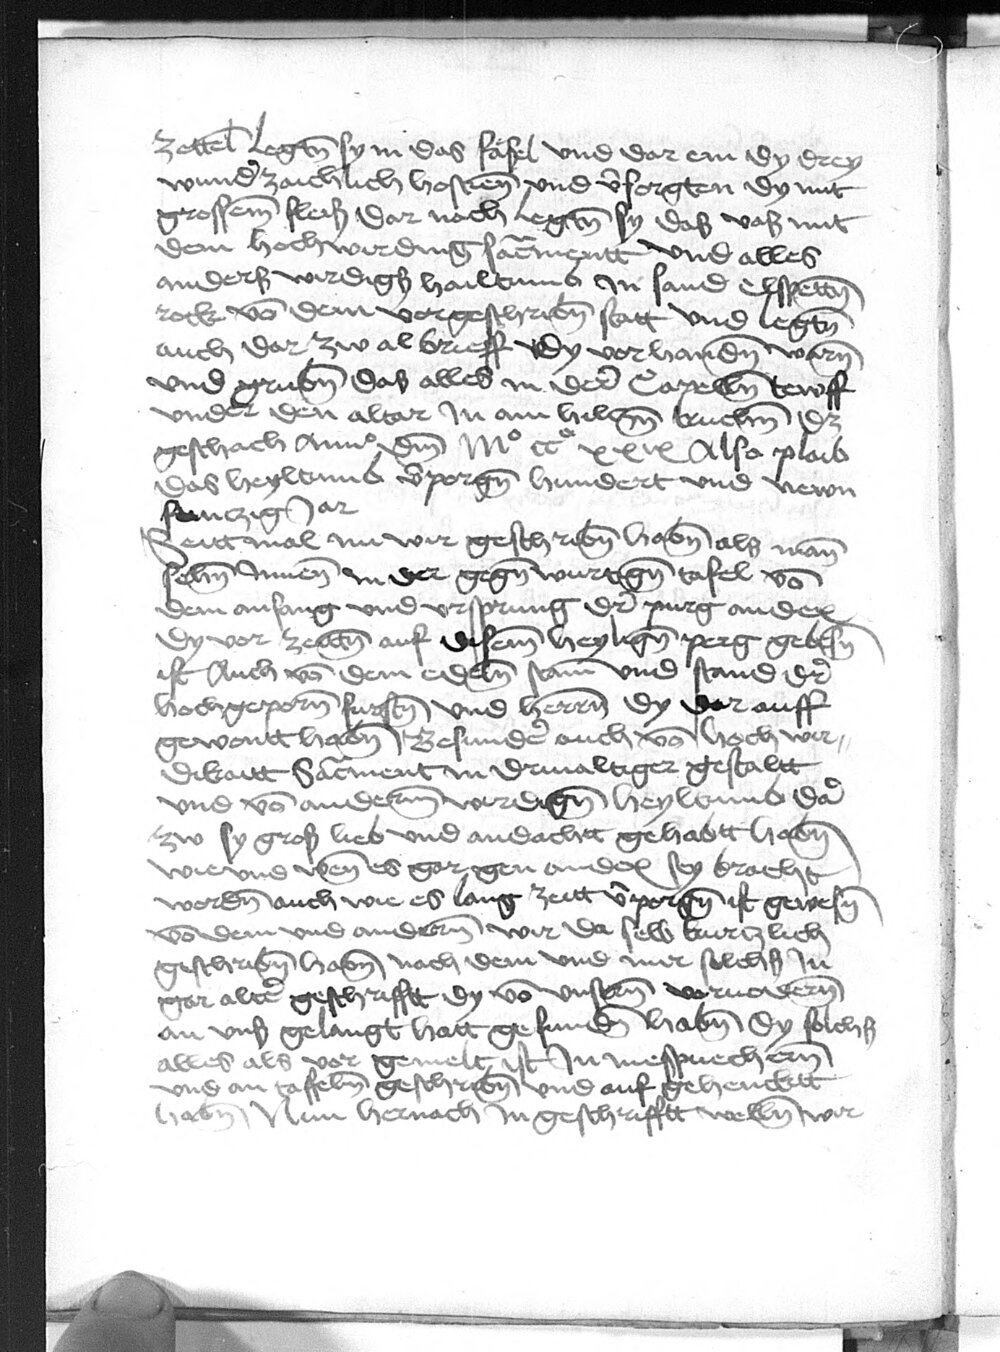 zettel legtn̄ sy in das säsel vnd dar ein dy drey
wund̉zaichlich hostien̄ vnd v̄sorgten dy mit
grossem̄ fleiß Dar nach legtn̄ sy das vaß mit
dem hochwirding sacr̄ment vnd alles
anderß wirdigß hailtumb In sand Elspettn̄
rock võ dem vorgeschribn̄ statt vnd legtn̄
auch dar zw al brieff dy vorhandn̄ warn̄
vnd grubn̄ das alles in der̉ Capelln̄ tewff
vnder den altar In ain hiltzn̄ truchn̄ dz
geschach Anno dn̄i Mº ccº xxix Also plaib
das heyltumb v̄porgn̄ hundert vnd newn
funczig Jar
Seittmal nu wir geschribn̄ habn̄ als man̄
sehn̄ Innen̄ In der gegn̄wurtign̄ tafel võ
dem anfang vnd vrsprung dr̉ purg andex
dy vor zeittn̄ auf disem̄ heylign̄ perg gebesn̄
ist Auch võ dem edeln̄ stam̄ vnd stand dr̉
hochgeporn̄ furstn̄ vnd herrn̄ dy dar auff
gewontt habn̄ Besunder̉ auch võ hochwir,,
dikaitt Sacr̄ment in drinaltiger gestaltt
vnd võ anderm̄ wirdign̄ heyltumb dar̉
zw sy groß lieb vnd andachtt gehabtt habn̄
wie vnd wen̄ es gar gen andex sey bracht
wordn̄ auch wie es lang zeitt v̄porgn̄ ist gewesn̄
võ dem vnd andern̄ wir da selb kurczlich
geschribn̄ habn̄ nach dem vnd mir solchß In
gar alter̉ geschrifftt dy võ vnsern̄ voruodern̄
an vnß gelangt hatt gefundn̄ habn̄ dy solchß
alles als vor gemelt ist In messpuechern̄
vnd an taffeln̄ geschribn̄ vnd auf gehencktt
habn̄ Nun hernach In geschrifftt welln̄ wir